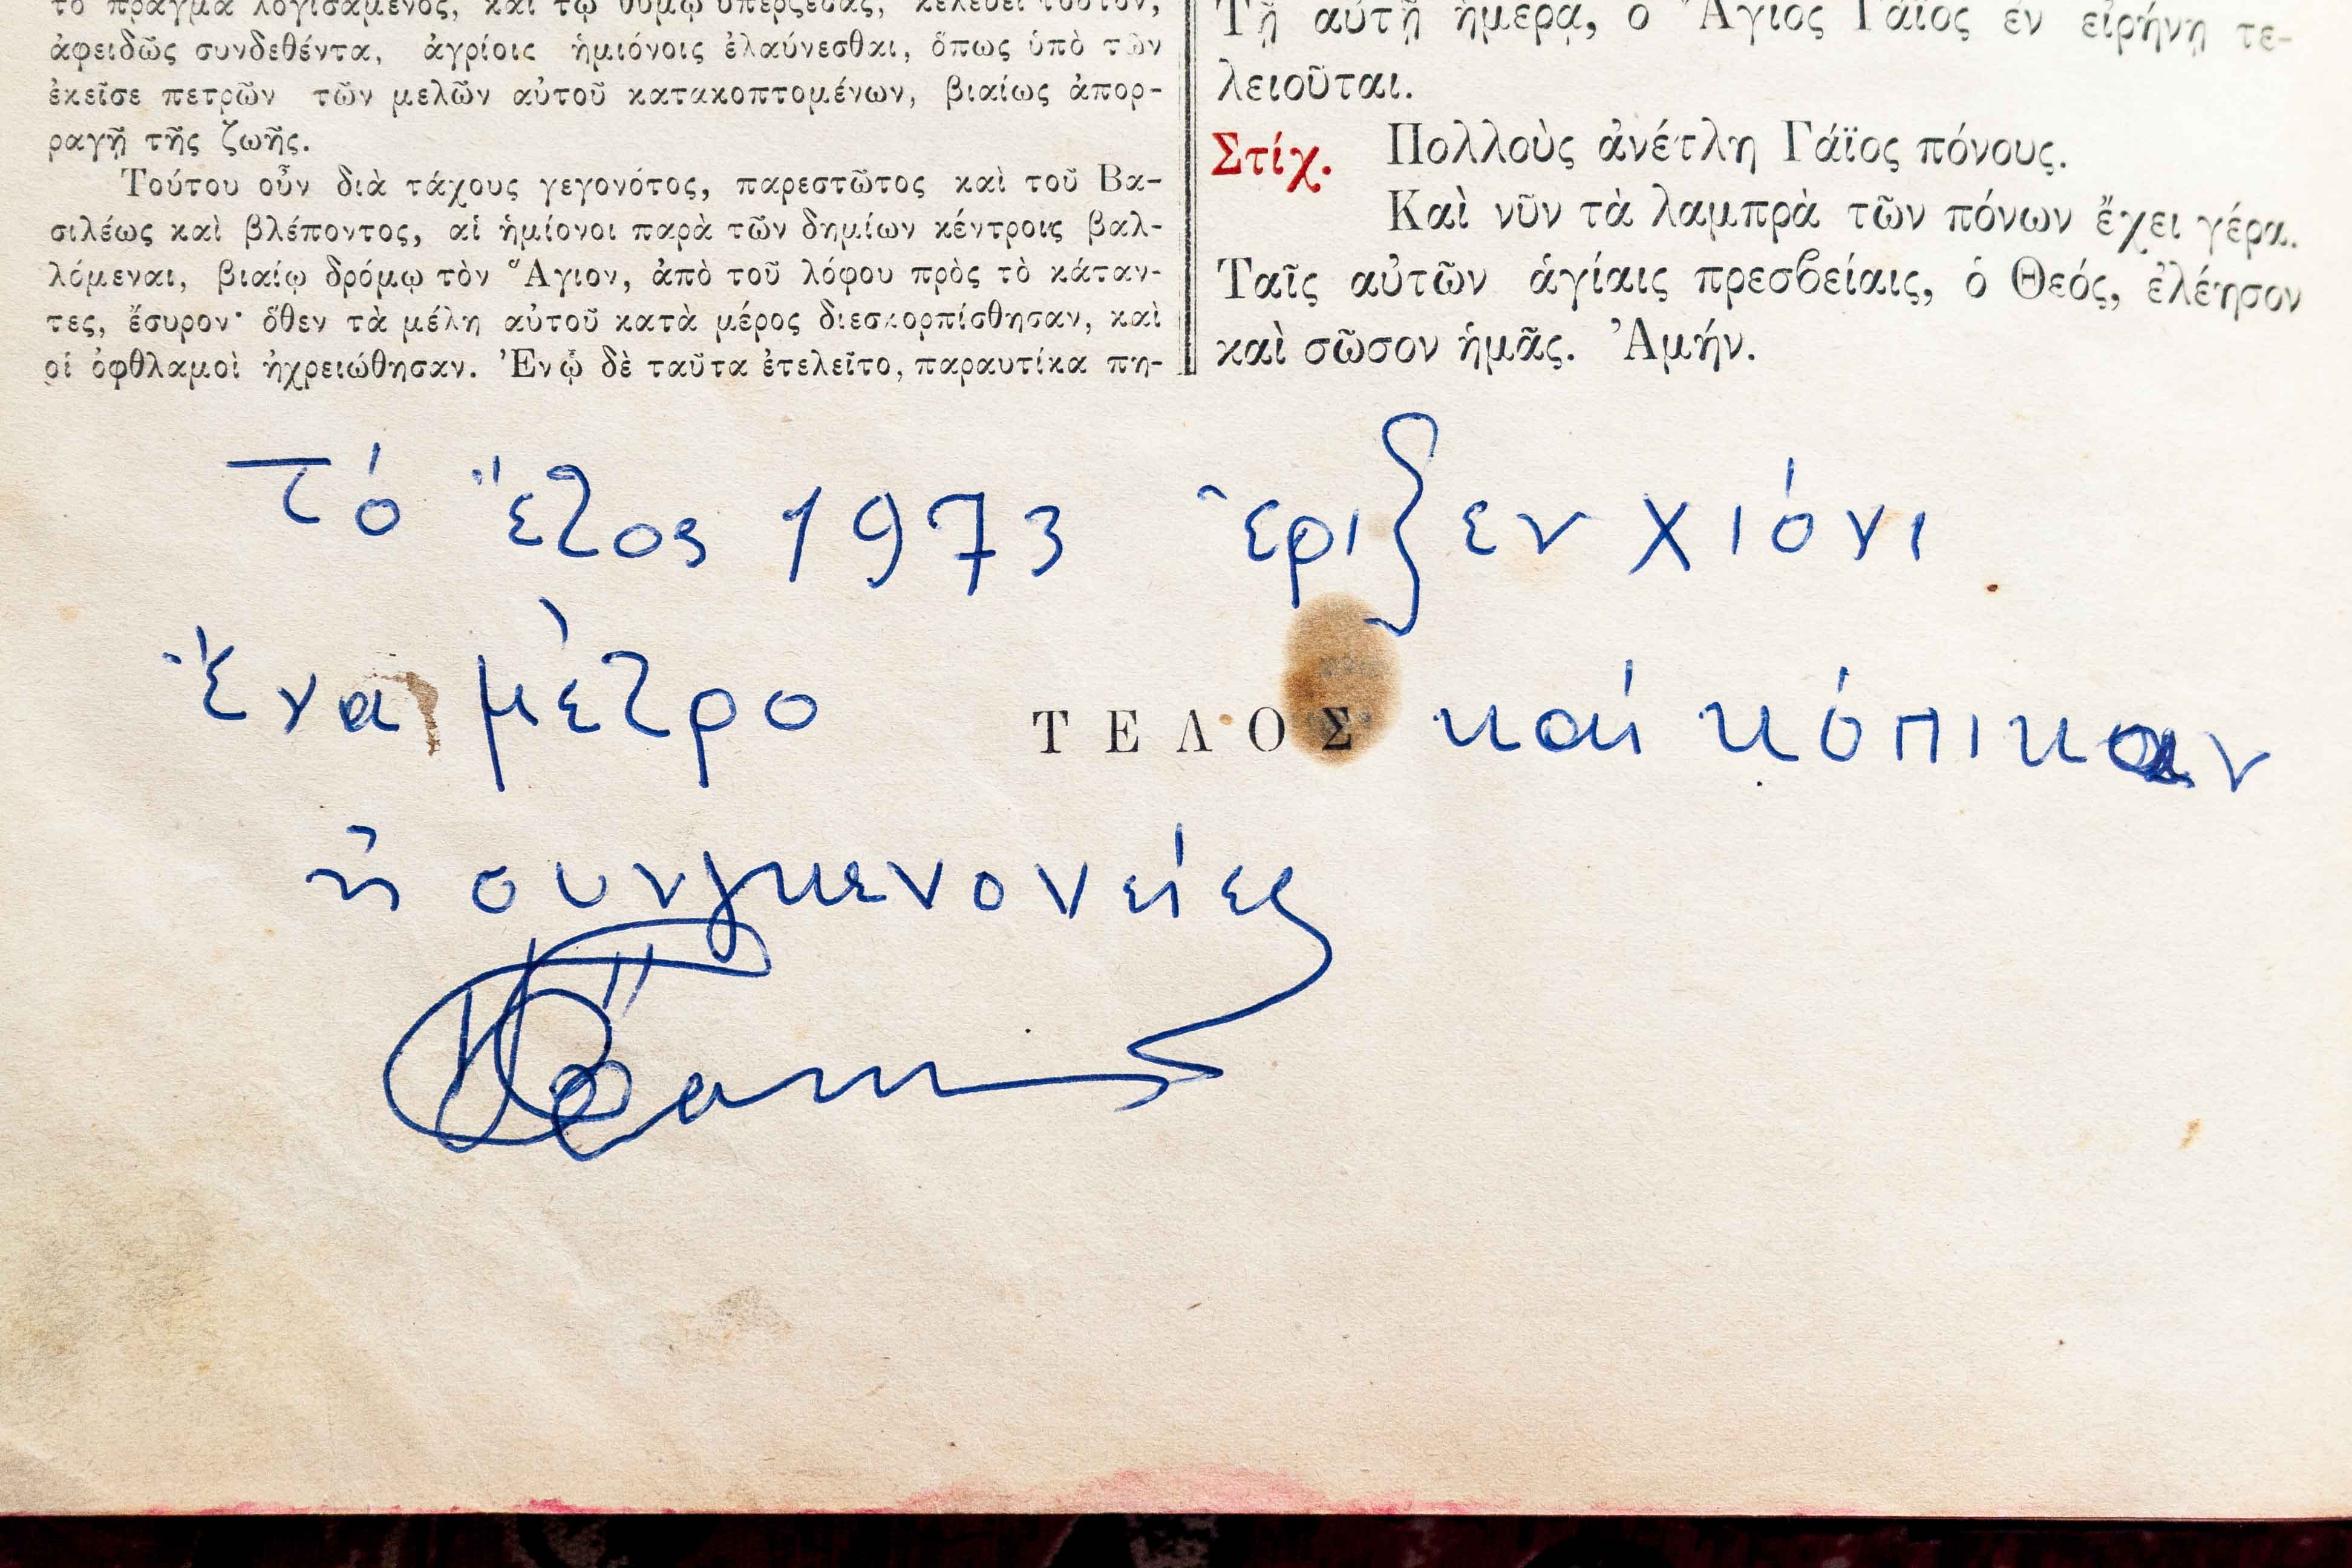 τὸ πρᾶγμα λογισάμενος, καὶ τῷ θυμῷ ὑπερζέσας, κελεύει τοῦτον,
ἀφειδῶς συνδεθέντα, ἀγρίοις ἡμιόνοις ἐλαύνεσθαι, ὅπως ὑπὸ τῶν
ἐκεῖσε πετρῶν τῶν μελῶν αὐτοῦ κατακοπτομένων, βιαίως ἀπορ-
ραγῇ τῆς ζωῆς.
Τούτου οὖν διὰ τάχους γεγονότος, παρεστῶτος καὶ τοῦ Βα-
σιλέως καὶ βλέποντος, αἱ ἡμίονοι παρὰ τῶν δημίων κέντροις βαλ-
λόμεναι, βιαίῳ δρόμῳ τὸν Ἅγιον, ἀπὸ τοῦ λόφου πρὸς τὸ κάταν-
τες, ἔσυρον· ὅθεν τὰ μέλη αὐτοῦ κατὰ μέρος διεσκορπίσθησαν, καὶ
οἱ ὀφθλαμοὶ ἠχρειώθησαν. Ἐνῷ δὲ ταῦτα ἐτελεῖτο, παραυτίκα πη-
Τῇ αὐτῇ ἡμέρᾳ, ὁ Ἅγιος Γάϊος ἐν εἰρήνῃ τε-
λειοῦται.
Στίχ. Πολλοὺς ἀνέτλη Γάϊος πόνους.
Καὶ νῦν τὰ λαμπρὰ τῶν πόνων ἔχει γέρα.
Ταῖς αὐτῶν ἁγίαις πρεσβείαις, ὁ Θεός, ἐλέησον
καὶ σῶσον ἡμᾶς. Ἀμήν.
τό ἔτος 1973 ἐριξεν χιόνι
Ἕνα μὲτρο ΤΕΛΟΣ καί κόπικαν
ἡ συνγκενονείες